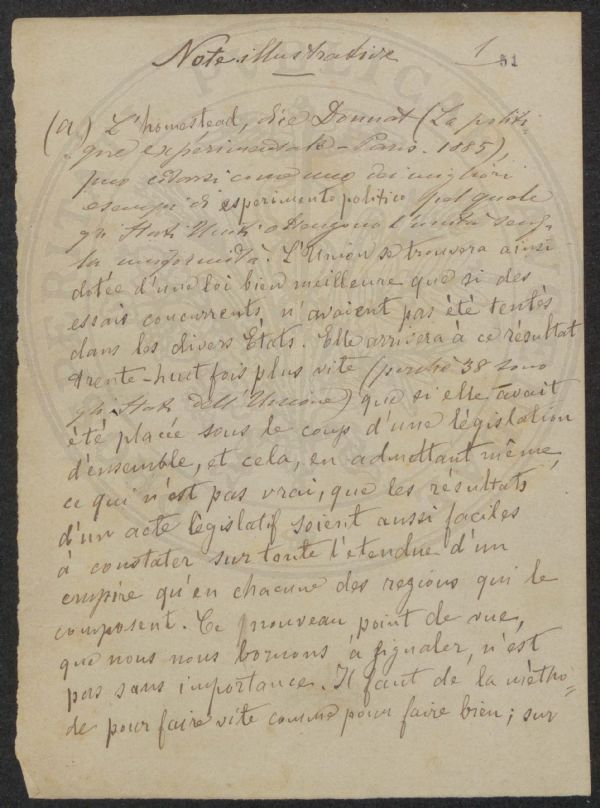 Note illustrative 1 51
(a) L'homestead, dice Donnat (La politi-
que expérimentale - Paris. 1885),
puo citarsi come uno dei migliori
esempi di esperimento politico pel quale
gli Stati Uniti ottengono l'unità senz-
la uniformità. L'Union se trouvera ainsi
dotée d'une loi bien meilleure que si des
essais concurrents n'avaient pas été tentés
dans les divers États. Elle arrivera à ce résultat
trente-huit fois plus vite (perchè 38 sono
gli Stati dell'Unione) que si elle avait
été placée sous le coup d'une législation
d'ensemble, et cela, en admettant même,
ce qui n'est pas vrai, que les résultats
d'un acte législatif soient aussi faciles
à constater sur toute l'etendue d'un
empire qu'en chacune des regions qui le
composent. Ce nouveau point de vue,
que nous nous bornons à signaler, n'est
pas sans importance. Il faut de la métho-
de pour faire vite comme pour faire bien; sur